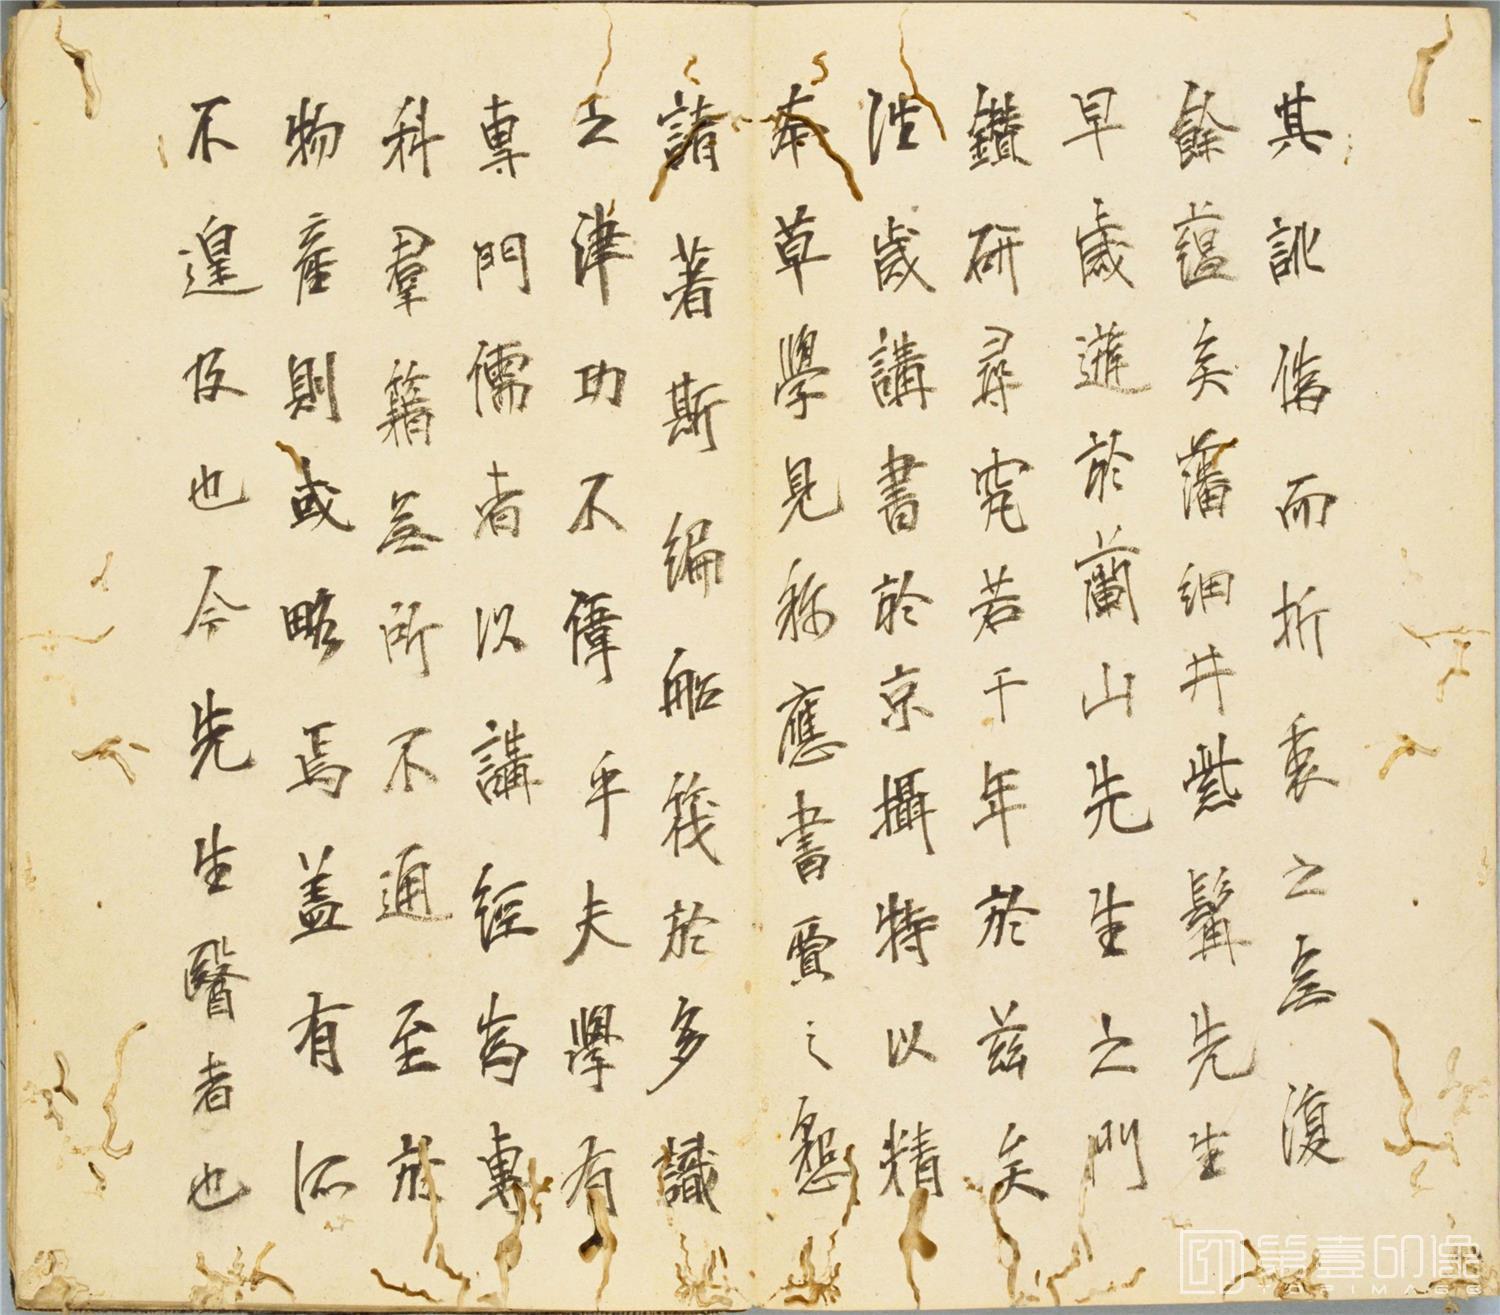 其訛僞而折衷之至復
餘蘊矣藩細井紫髯先生
早歲遊於蘭山先生之門
鑽研尋究若干年於茲矣
往歲講書於京攝特以精
本草學見称應書賈之懇
請著斯編船筏於多識
之津功不偉乎夫學有
専門儒者以講經為專
科羣籍無所不通至於
物産則或略焉盖有所
不遑及也今先生醫者也
第壹印像
TOPIMAGE